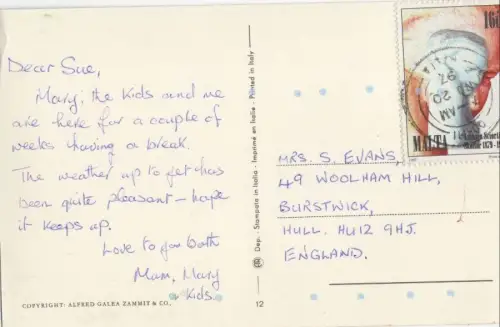 Dear Sue,
Mary, the kids and me
are here for a couple of
weeks having a break.
The weather up to yet has
been quite pleasant - hope
it keeps up.
Love to you both
Mam, Mary
& kids.
COPYRIGHT: ALFRED GALEA ZAMMIT & CO.
12
Dep. - Stampato in Italia - Imprimé en Italie - Printed in Italy
MRS. S. EVANS,
49 WOOLHAM HILL,
BURSTWICK,
HULL. HU12 9HJ.
ENGLAND.
16
MALTA
20
97
AM